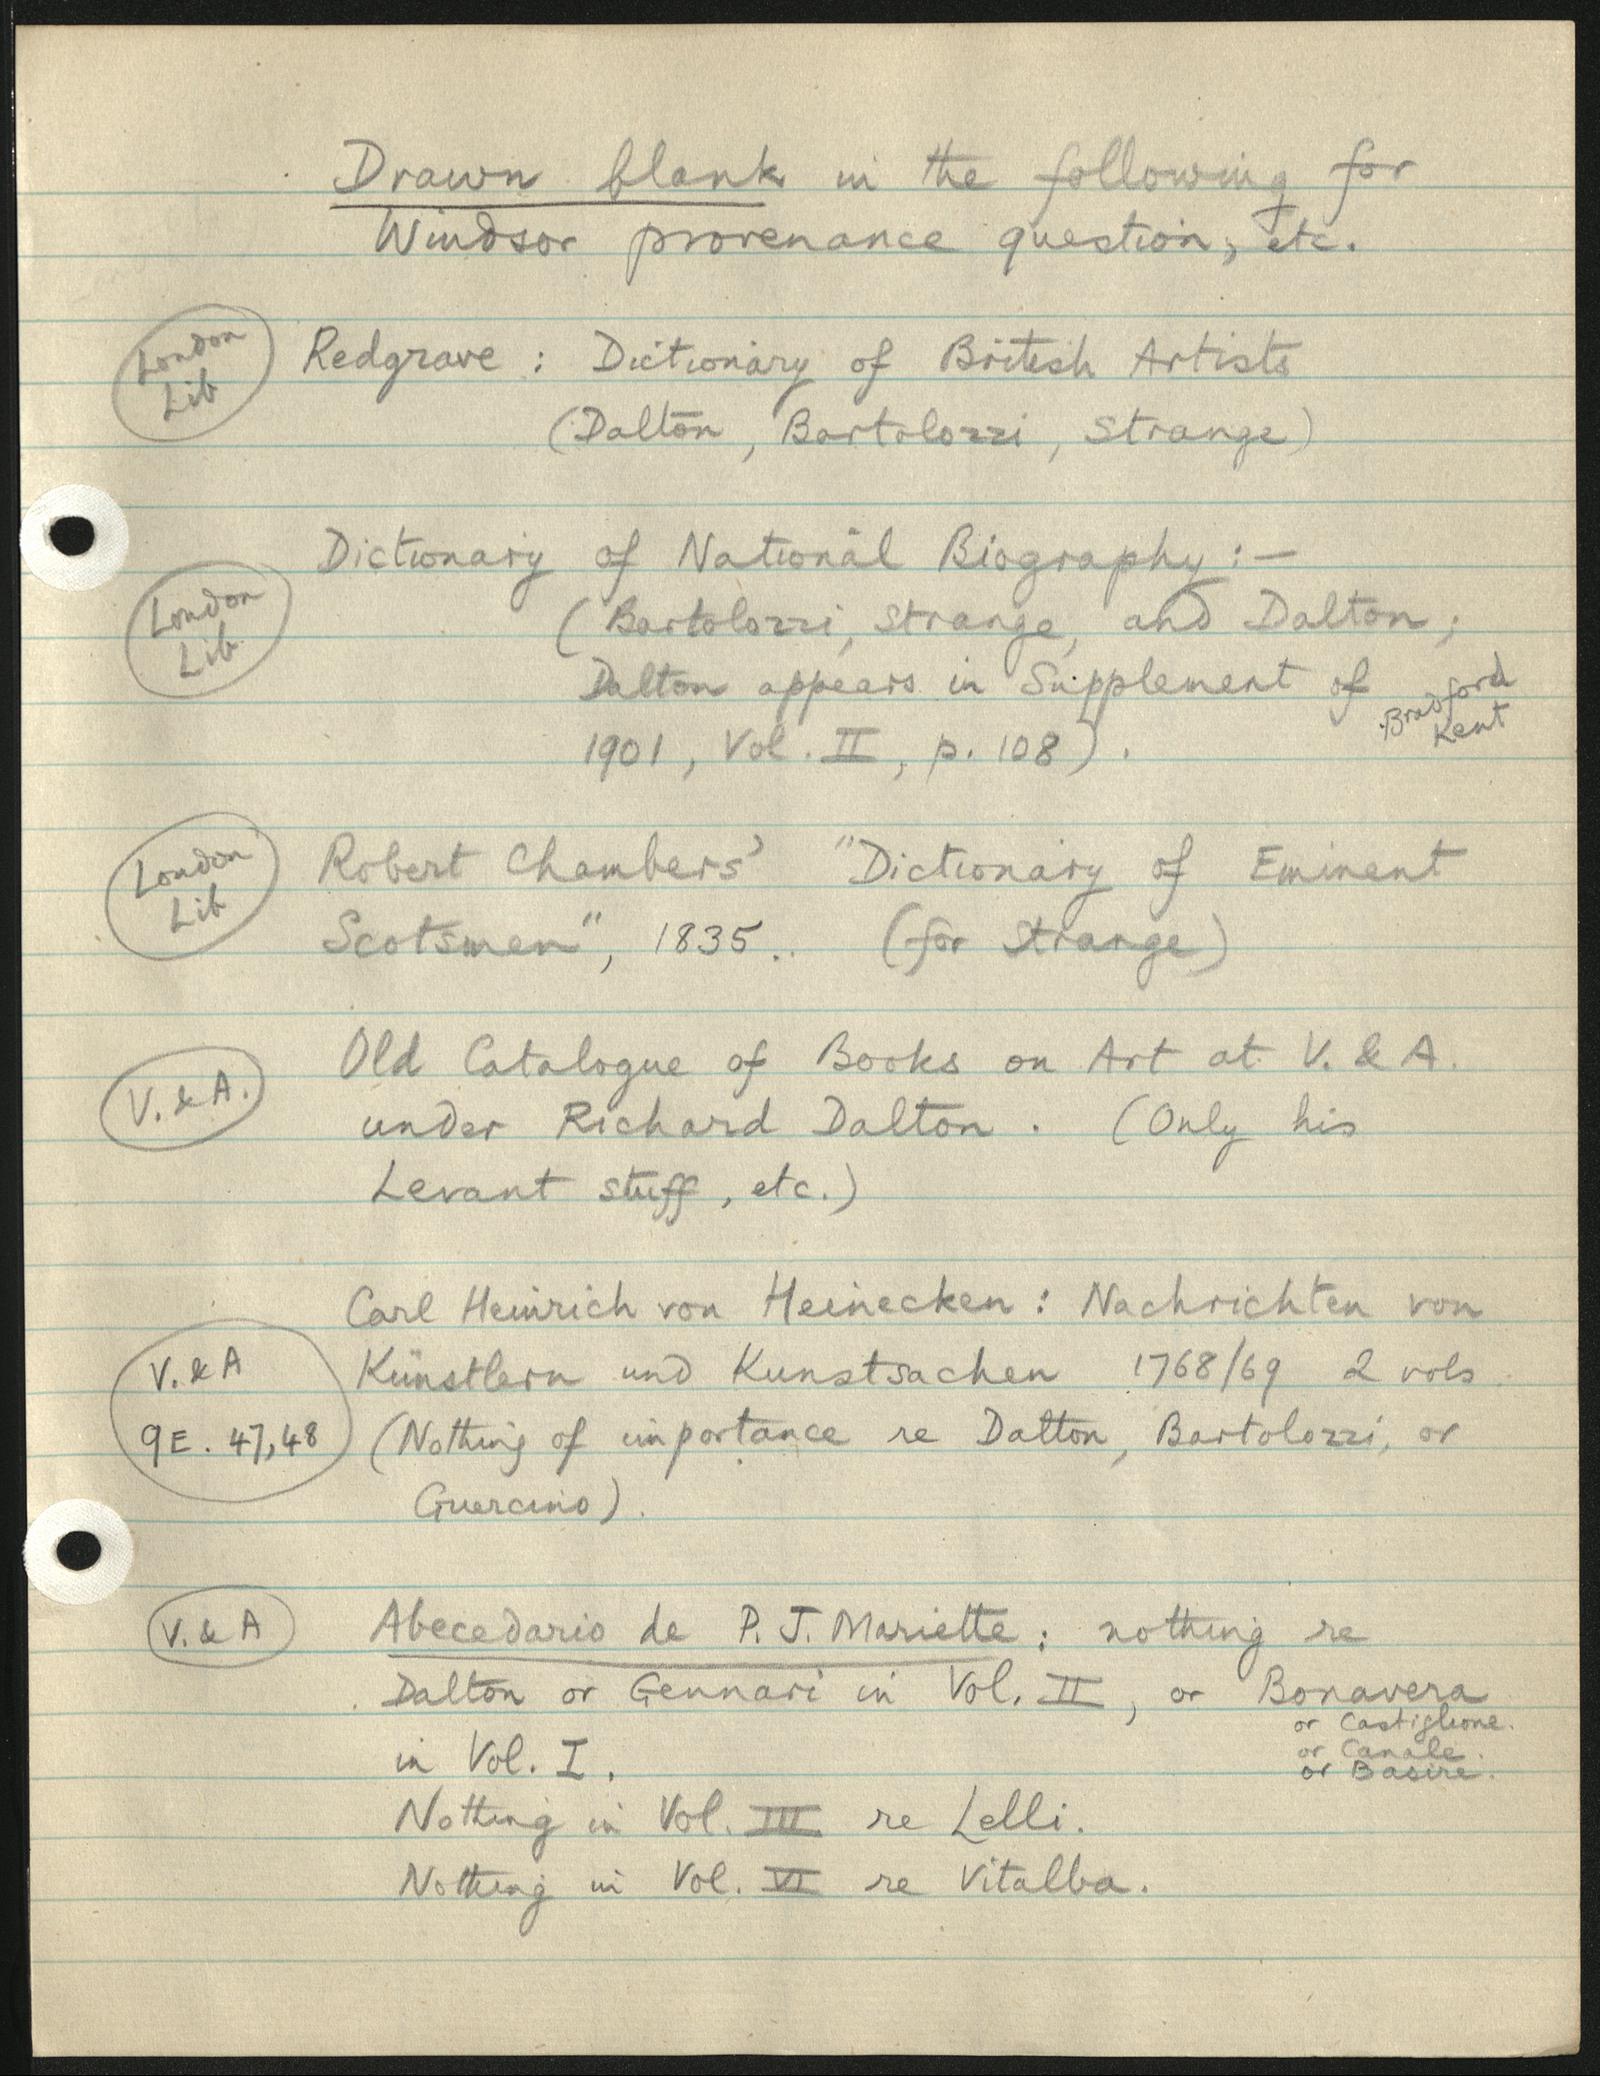 Drawn blank in the following for
Windsor provenance question, etc.
London
Lib
Redgrave : Dictionary of British Artists
(Dalton, Bartolozzi, Strange)
Dictionary of National Biography :—
London
Lib.
(Bartolozzi, Strange, and Dalton;
Dalton appears in Supplement of
1901, Vol. II, p. 108).
Bradford
Kent
London
Lib
Robert Chambers' "Dictionary of Eminent
Scotsmen", 1835.. (for Strange)
V. & A.
Old Catalogue of Books on Art at V. & A.
under Richard Dalton. (Only his
Levant stuff, etc.)
Carl Heinrich von Heinecken : Nachrichten von
V. & A
9E. 47,48
Künstlern und Kunstsachen 1768/69 2 vols.
(Nothing of importance re Dalton, Bartolozzi, or
Guercino).
V. & A
Abecedario de P. J. Mariette : nothing re
Dalton or Gennari in Vol. II, or Bonavera
or Castiglione.
or Canale.
or Basire.
in Vol. I.
Nothing in Vol. III re Lelli.
Nothing in Vol. VI re Vitalba.